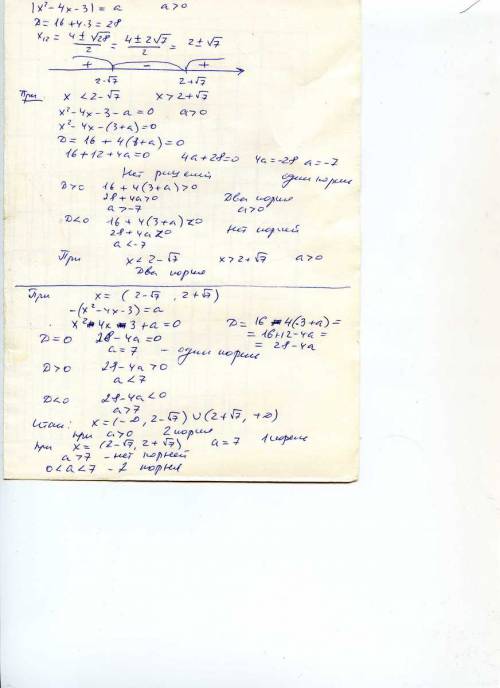 |x²-4x-3| = a   a>0
D = 16+4·3 = 28
x₁₂ = (4±√28)/2 = (4±2√7)/2 = 2±√7
+ - +
2-√7   2+√7
При x < 2-√7   x > 2+√7
x²-4x-3-a=0   a>0
x²-4x-(3+a)=0
D = 16 + 4(3+a)=0
16+12+4a=0   4a+28=0   4a=-28   a=-7
Нет решений   один корень
D>0   16+4(3+a)>0
28+4a>0   Два корня
a>-7   a>0
D<0   16+4(3+a)<0
28+4a<0   Нет корней
a<-7
При x<2-√7   x>2+√7   a>0
Два корня
При x = (2-√7, 2+√7)
-(x²-4x-3)=a
x²-4x-3+a=0   D = 16-4(-3+a) =
= 16+12-4a =
D=0   28-4a=0   = 28-4a
a=7 - один корень
D>0   28-4a>0
a<7
D<0   28-4a<0
a>7
Итак: x=(-∞, 2-√7)∪(2+√7, +∞)
при a>0   2 корня
при x=(2-√7, 2+√7)   a=7   1 корень
a>7 - нет корней
0<a<7 - 2 корня